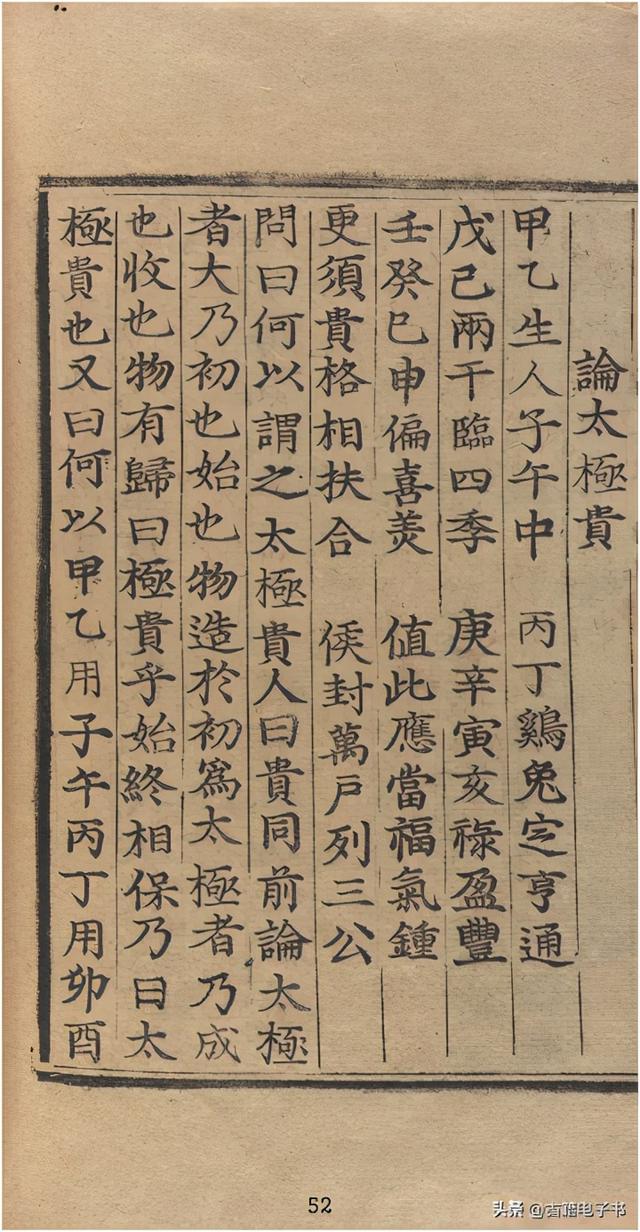 論太極貴
甲乙生人子午中 丙丁鷄兔定亨通
戊己兩干臨四季 庚辛寅亥祿盈豐
壬癸巳申偏喜美 值此應當福氣鍾
更須貴格相扶合 侯封萬戶列三公
問曰何以謂之太極貴人曰貴同前論太極
者大乃初也始也物造於初為太極者乃成
也收也物有歸曰極貴乎始終相保乃曰太
極貴也又曰何以甲乙用子午丙丁用卯酉
52
头条 @古籍电子书